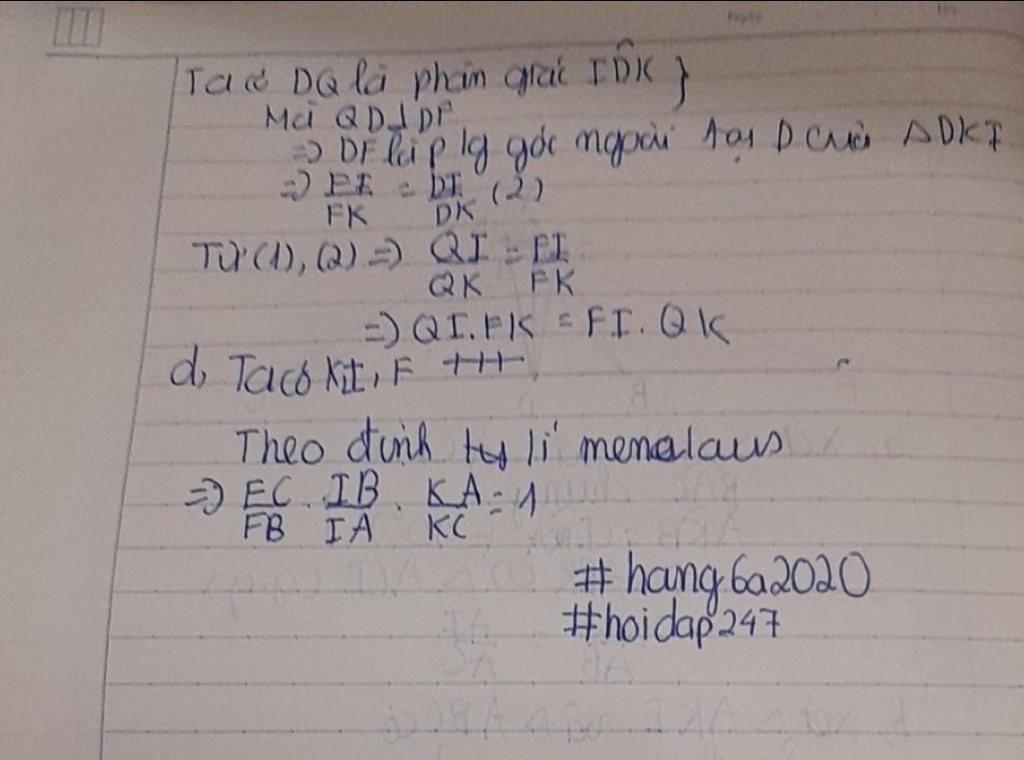 Ta có DQ là phân giác IDK }
Mà QD⊥DF
=> DF là p/g góc ngoài tại D của △DKI
=> FI/FK = DI/DK (2)
Từ (1), (2) => QI/QK = FI/FK
=> QI.FK = FI.QK
d, Ta có K,I,F
Theo định lí menalaus
=> FC/FB . IB/IA . KA/KC = 1
#hang6a2020
#hoidap247